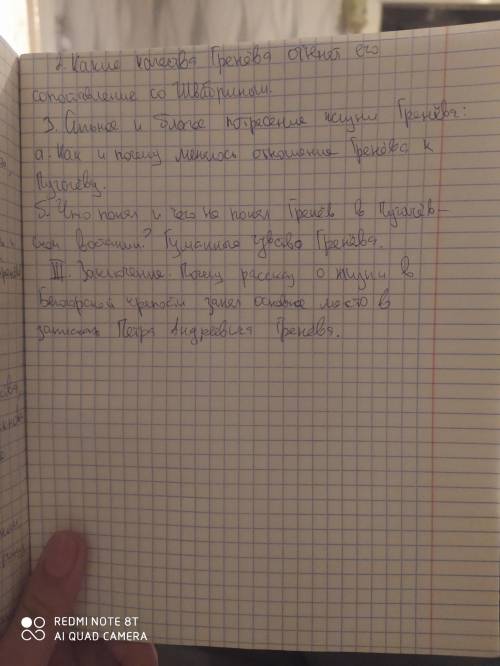 2. Какие качества Гренёва оттенет его
сопоставление со Швабриным.
3. Сильное и благое потрясение жизни Гренёва:
а. Как и почему менялось отношение Гренёва к
Пугачёву.
б. Что понял и чего не понял Гренёв в Пугачёв-
ском востании? Гуманные чувства Гренёва.
III. Заключение. Почему рассказ о жизни в
Белогорской крепости занял основное место в
записках Петра Андреевича Гренёва.
REDMI NOTE 8T
AI QUAD CAMERA